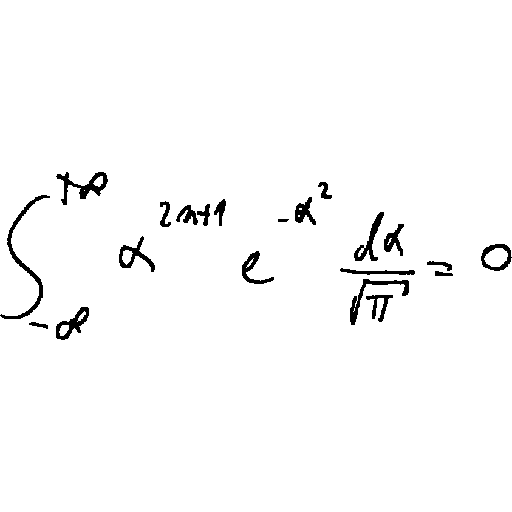 \int_{-\infty}^{+\infty} \alpha^{2n+1} e^{-\alpha^2} \frac{d\alpha}{\sqrt{\pi}} = 0